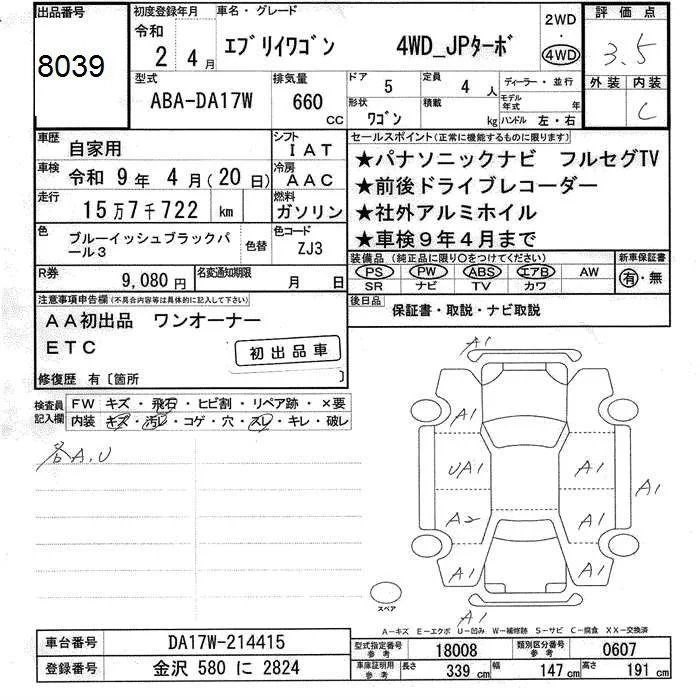 出品番号
8039
初度登録年月
令和
2 4 月
車名・グレード
エブリイワゴン 4WD_JPターボ
2WD
・
4WD
評価点
3.5
外装 内装
C
型式
ABA-DA17W
排気量
660 CC
ドア 5
定員 4 人
ディーラー・並行
形状 ワゴン
積載 kg
モデル年式 年
ハンドル 左・右
車歴 自家用
シフト IAT
車検 令和 9 年 4 月(20 日)
冷房 AAC
走行 15 万 7 千 722 km
燃料 ガソリン
色 ブルーイッシュブラックパ
ール3
色替
色コード ZJ3
R券 9,080 円
名変通知期限 月 日
セールスポイント(正常に機能するものに限ります)
★パナソニックナビ フルセグTV
★前後ドライブレコーダー
★社外アルミホイル
★車検9年4月まで
装備品(純正品に限り○をつけてください)
新車保証書
PS PW ABS エアB AW
SR ナビ TV カワ
有・無
後日品 保証書・取説・ナビ取説
注意事項申告欄(不具合内容等は具体的に記入して下さい)
AA初出品 ワンオーナー
ETC
初出品車
修復歴 有〔箇所 〕
検査員
記入欄
FW キズ・飛石・ヒビ割・リペア跡・×要
内装 キズ・汚レ・コゲ・穴・スレ・キレ・破レ
各A,U
A1
A1
UA1 A1
A1
A2 A1
A1 A1
A1
スペア
A-キズ E-エクボ U-凹み W-補修跡 S-サビ C-腐食 XX-交換済
車台番号 DA17W-214415
登録番号 金沢 580 に 2824
型式指定番号 参考 18008
類別区分番号 参考 0607
車庫証明用 参考 長さ 339 cm 幅 147 cm 高さ 191 cm